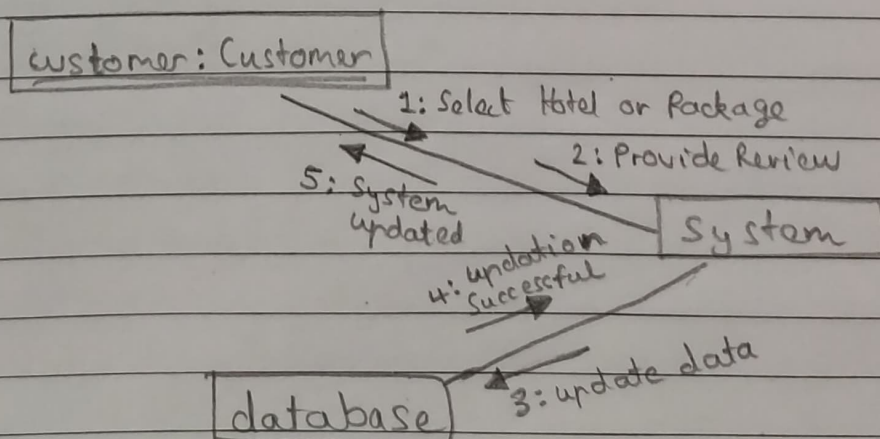 customer: Customer
1: Select Hotel or Package
2: Provide Review
5: System
updated
System
4: updation
successful
3: update data
database